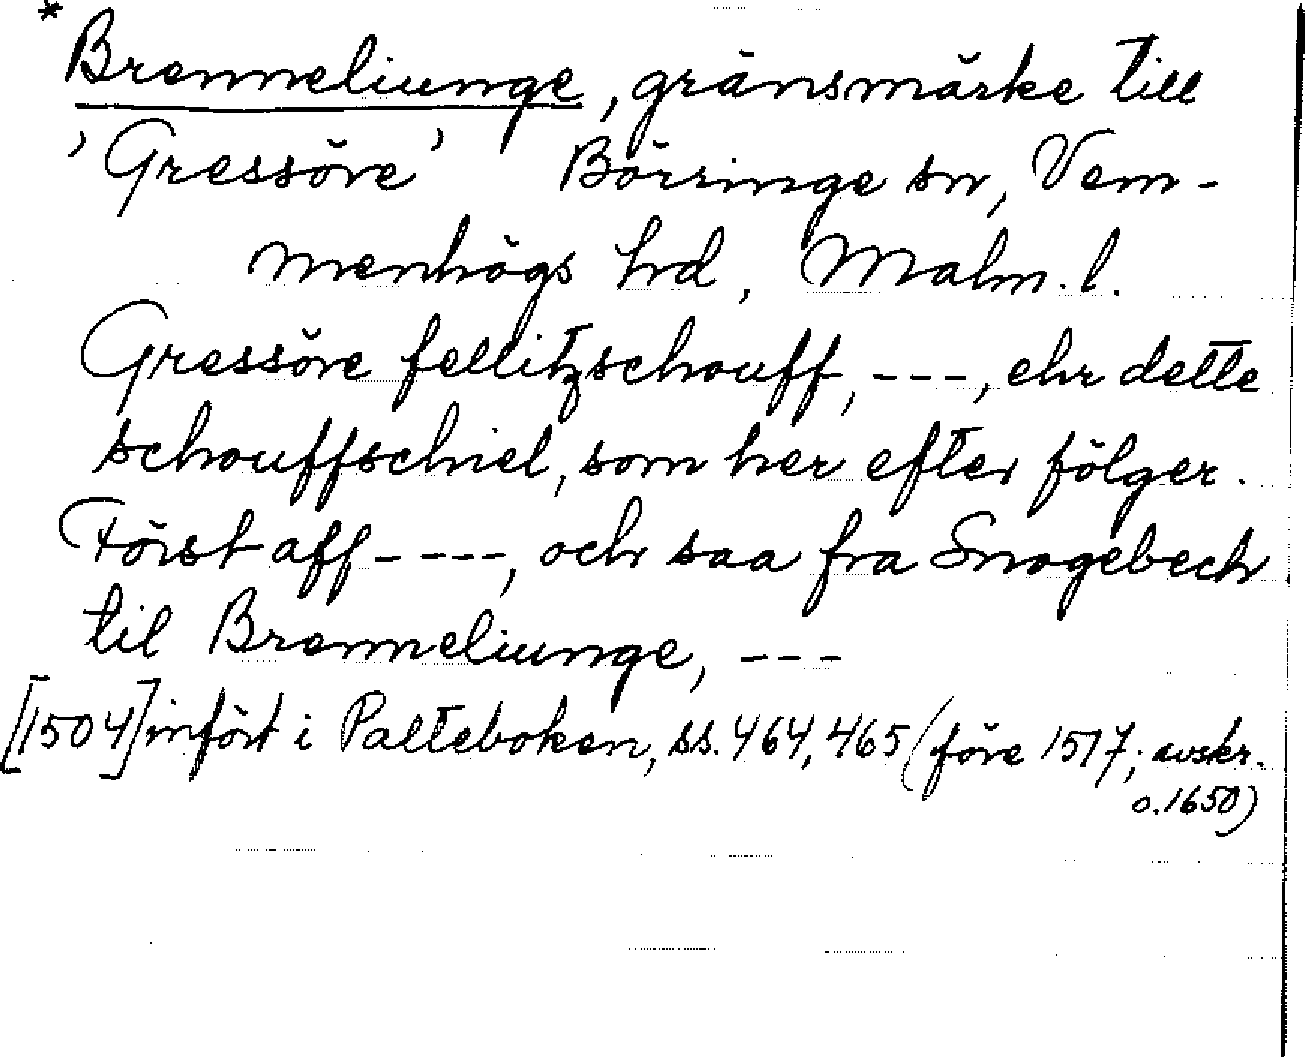 *Brenneliunge, gränsmärke till
'Gressöve' Börringe sn, Vem-
menhögs hd, Malm. l.
Gressöve fellitzschouff, ---, ehr dette
schouffschiel, som her efter fölger.
Först aff ----, och saa fra Snogebech
til Brenneliunge, ---
[1504] infört i Palteboken, ss. 464, 465 (före 1517; avskr.
o. 1650)